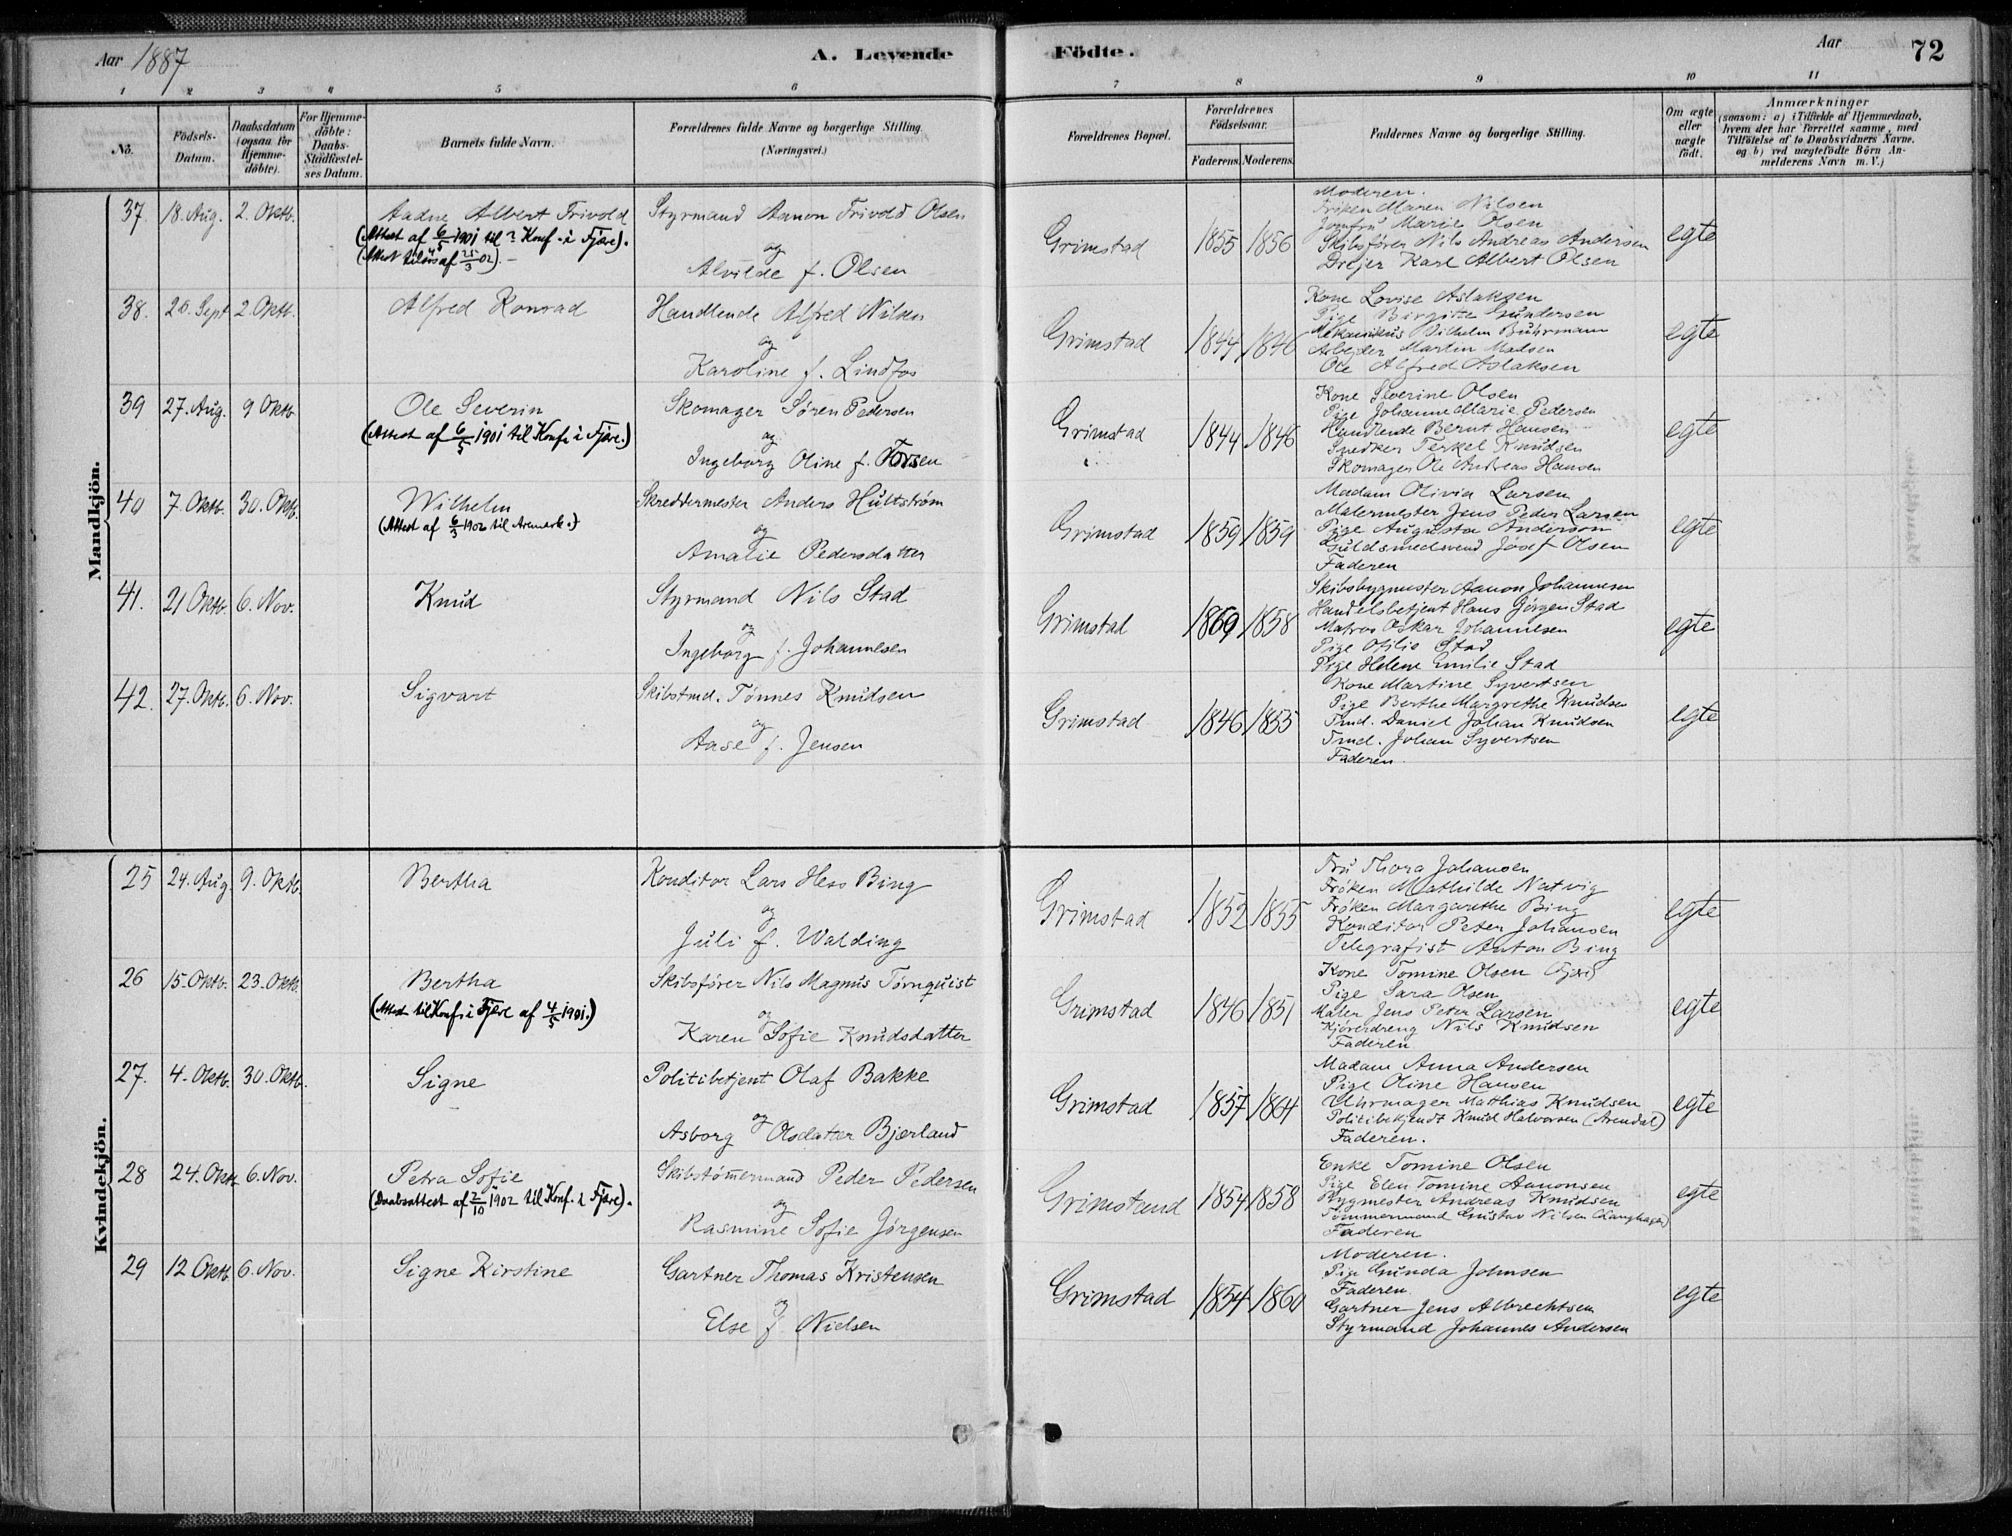 Aar 1887
A. Levende
Födte.
Aar
72
1 2 3 4 5 6 7 8 9 10 11
No.
Födsels-
Datum.
Daabsdatum
(ogsaa for
Hjemme-
döbte).
For Hjemme-
döbte:
Daabs-
Stadfæstel-
ses Datum.
Barnets fulde Navn.
Forældrenes fulde Navne og borgerlige Stilling.
(Næringsvei.)
Forældrenes Bopæl.
Forældrenes
Födselsaar.
Faderens. Moderens.
Faddernes Navne og borgerlige Stilling.
Om ægte
eller
uægte
födt.
Anmærkninger
(saasom: a) i Tilfælde af Hjemmedaab,
hvem der har forrettet samme, med
Tilföielse af to Daabsvidners Navne,
og b) ved uægtefödte Börn An-
melderens Navn m. V.)
Mandkjön.
37. 18. Aug. 2. Oktb. Aadne Albert Trivold
(Attest af 6/5 1901 til Konf. i Fjære).
Styrmand Aanon Trivold Olsen
og
Alvilde f. Olsen
Grimstad 1855 1856
Moderen.
Frøken Maren Nilsen
Jomfru Marie Olsen
Skibsfører Nils Andreas Andersen
Drejer Karl Albert Olsen
egte
38. 20. Sept 2. Oktb. Alfred Konrad
Handlende Alfred Nilsen
og
Karoline f. Lindfos
Grimstad 1844 1846
Kone Lovise Aslaksen
Pige Birgitte Gundersen
Mekanikus Vilhelm Buhrmann
Arbejder Martin Madsen
Ole Alfred Aslaksen
egte
39 27. Aug. 9 Oktb. Ole Severin
(Attest af 6/5 1901 til Konf. i Fjære.)
Skomager Søren Pedersen
og
Ingeborg Oline f. Torsen
Grimstad 1844 1846
Kone Severine Olsen
Pige Johanne Marie Pedersen
Handlende Bernt Hansen
Snedker Terkel Knudsen
Skomager Ole Andreas Hansen
egte
40 7. Oktb. 30. Oktb. Wilhelm
(Attest af 6/5 1902 til Aremark.)
Skreddermester Anders Hultstrøm
og
Amalie Pedersdatter
Grimstad 1859 1859
Madam Olivia Larsen
Malermester Jens Peder Larsen
Pige Augusta Anderson
Guldsmedsvend Josef Olsen
Faderen
egte
41. 21 Oktb. 6. Nov. Knud
Styrmand Nils Stad
og
Ingeborg f. Johannesen
Grimstad 1869 1858
Skibsbygmester Aanon Johannesen
Handelsbetjent Hans Jørgen Stad
Matros Oskar Johannesen
Pige Otilie Stad
Pige Helene Emilie Stad
egte
42. 27. Oktb. 6. Nov. Sigvart
Skibstmd. Tønnes Knudsen
og
Aase f. Jensen
Grimstad 1846 1855
Kone Martine Syvertsen
Pige Berthe Margrethe Knudsen
Tmd. Daniel Johan Knudsen
Tmd. Johan Syvertsen
Faderen
egte
Kvindekjön.
25 24. Aug. 9. Oktb. Bertha
Konditor Lars Hess Bing
og
Juli f. Walding
Grimstad 1852 1855
Fru Thora Johansen
Frøken Mathilde Natvig
Frøken Margarethe Bing
Konditor Peter Johansen
Telegrafist Anton Bing
egte
26 15. Oktb. 23. Oktb. Bertha
(Attest til Konf. i Fjære af 4/5 1901.)
Skibsfører Nils Magnus Törnquist
og
Karen Sofie Knudsdatter
Grimstad 1846 1851
Kone Tomine Olsen
Pige Sara Olsen
Maler Jens Peter Larsen
Kjöredreng Nils Knudsen
Faderen
egte
27. 4. Oktb. 30. Oktb. Signe
Politibetjent Olaf Bakke
og
Asborg Olsdatter Bjerland
Grimstad 1857 1864
Madam Anna Andersen
Pige Oline Hansen
Uhrmager Matthias Knudsen
Politibetjendt Knud Halvorsen (Arendal)
Faderen.
egte
28 24. Oktb 6. Nov. Petra Sofie
(Daabsattest af 2/10 1902 til Konf. i Fjære).
Skibstømermand Peder Pedersen
og
Rasmine Sofie Jørgensen
Grimstad 1854 1858
Enke Tomine Olsen
Pige Elen Tomine Aanonsen
Bygmester Andreas Knudsen
Tømmermand Gustav Nilsen (Langhagen)
Faderen
egte
29 12 Oktb. 6. Nov. Signe Kirstine
Gartner Thomas Kristensen
og
Else f. Nielsen
Grimstad 1854 1860
Moderen.
Pige Gunda Johnsen
Faderen.
Gartner Jens Albrechtsen
Styrmand Johannes Andersen
egte